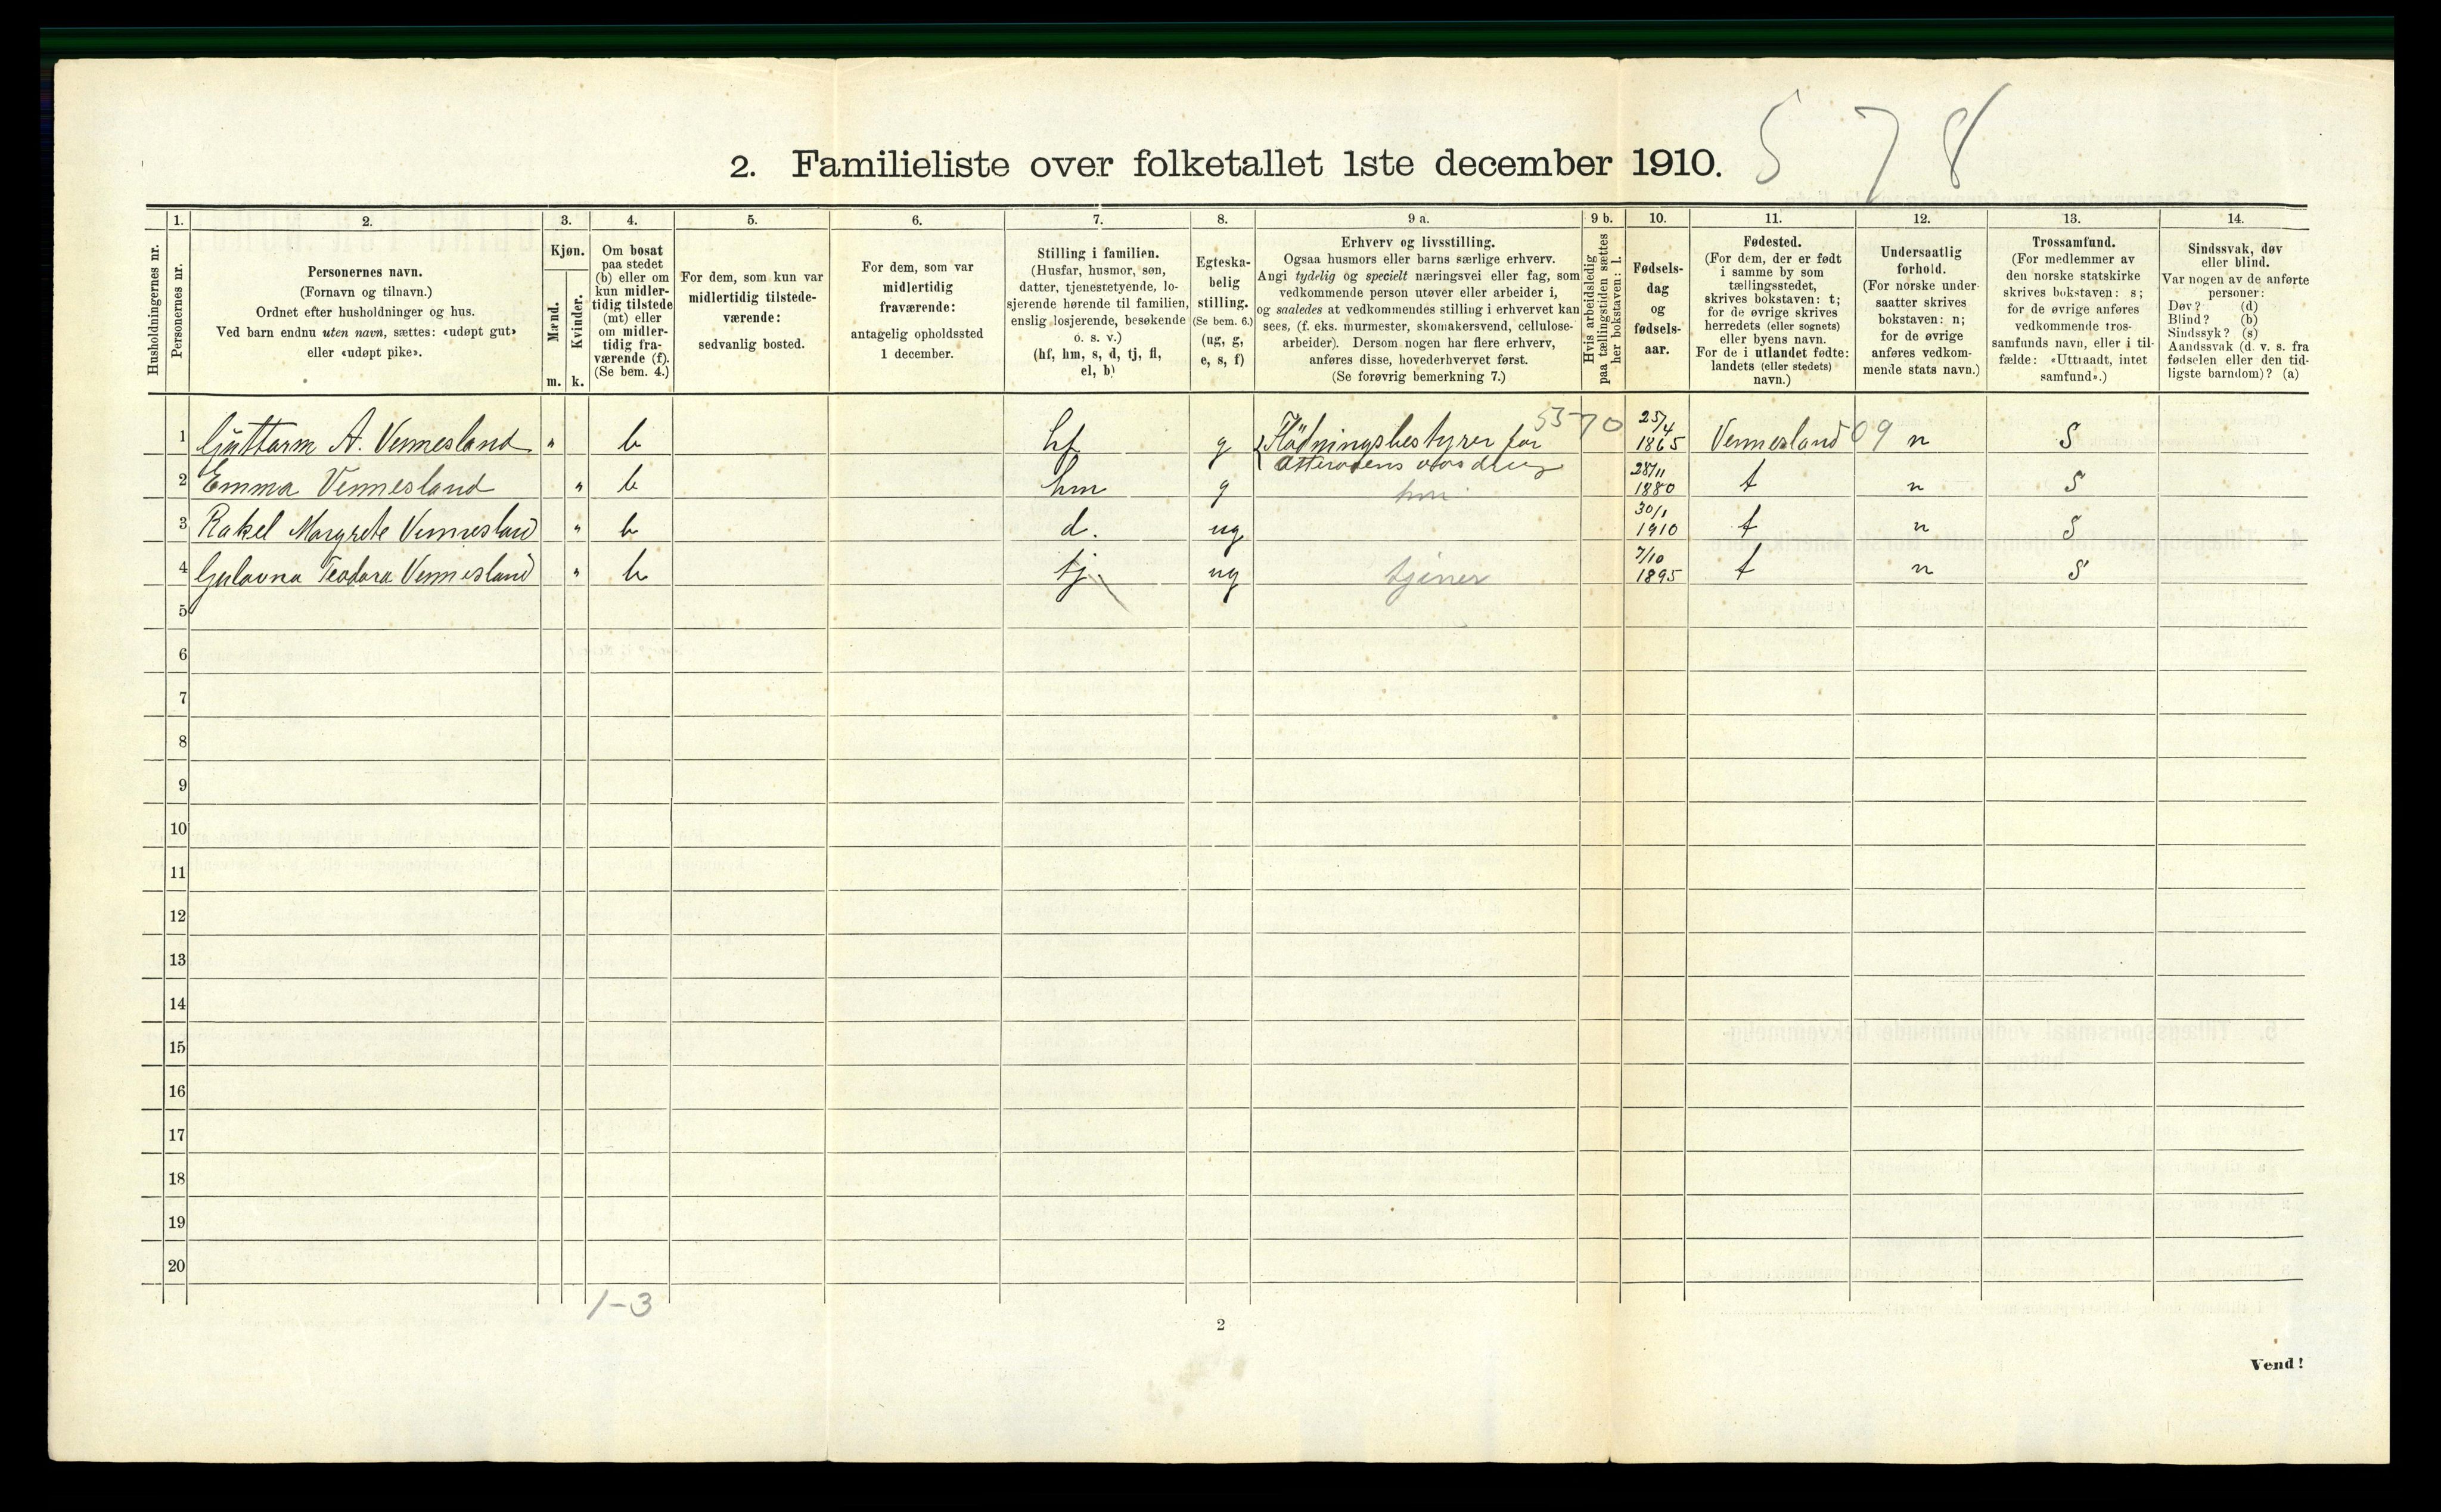 2. Familieliste over folketallet 1ste december 1910. 578
Husholdningernes nr.
1.
Personernes nr.
2.
Personernes navn.
(Fornavn og tilnavn.)
Ordnet efter husholdninger og hus.
Ved barn endnu uten navn, sættes: «udøpt gut»
eller «udøpt pike».
3.
Kjøn.
Mænd.
m.
Kvinder.
k.
4.
Om bosat
paa stedet
(b) eller om
kun midler-
tidig tilstede
(mt) eller
om midler-
tidig fra-
værende (f).
(Se bem. 4.)
5.
For dem, som kun var
midlertidig tilstede-
værende:
sedvanlig bosted.
6.
For dem, som var
midlertidig
fraværende:
antagelig opholdssted
1 december.
7.
Stilling i familien.
(Husfar, husmor, søn,
datter, tjenestetyende, lo-
sjerende hørende til familien,
enslig losjerende, besøkende
o. s. v.)
(hf, hm, s, d, tj, fl,
el, b)
8.
Egteska-
belig
stilling.
(Se bem. 6.)
(ug, g,
e, s, f)
9 a.
Erhverv og livsstilling.
Ogsaa husmors eller barns særlige erhverv.
Angi tydelig og specielt næringsvei eller fag, som
vedkommende person utøver eller arbeider i,
og saaledes at vedkommendes stilling i erhvervet kan
sees, (f. eks. murmester, skomakersvend, cellulose-
arbeider). Dersom nogen har flere erhverv,
anføres disse, hovederhvervet først.
(Se forøvrig bemerkning 7.)
9 b.
Hvis arbeidsledig
paa tællingstiden sættes
her bokstaven: l.
10.
Fødsels-
dag
og
fødsels-
aar.
11.
Fødested.
(For dem, der er født
i samme by som
tællingsstedet,
skrives bokstaven: t;
for de øvrige skrives
herredets (eller sognets)
eller byens navn.
For de i utlandet fødte:
landets (eller stedets)
navn.)
12.
Undersaatlig
forhold.
(For norske under-
saatter skrives
bokstaven: n;
for de øvrige
anføres vedkom-
mende stats navn.)
13.
Trossamfund.
(For medlemmer av
den norske statskirke
skrives bokstaven: s;
for de øvrige anføres
vedkommende tros-
samfunds navn, eller i til-
fælde: «Uttraadt, intet
samfund».)
14.
Sindssvak, døv
eller blind.
Var nogen av de anførte
personer:
Døv? (d)
Blind? (b)
Sindssyk? (s)
Aandssvak (d. v. s. fra
fødselen eller den tid-
ligste barndom)? (a)
1 Guttorm A. Vennesland " b hf g Flødningsbestyrer for 5570 25/4 1865 Vennesland 09 n S
2 Emma Vennesland " b hm g hm 28/11 1880 t n S
3 Rakel Margrete Vennesland " b d. ug 30/1 1910 t n S
4 Teodora Vennesland " b tj ug tjener 7/10 1895 t n S
5
6
7
8
9
10
11
12
13
14
15
16
17
18
19
20
1-3
2
Vend!